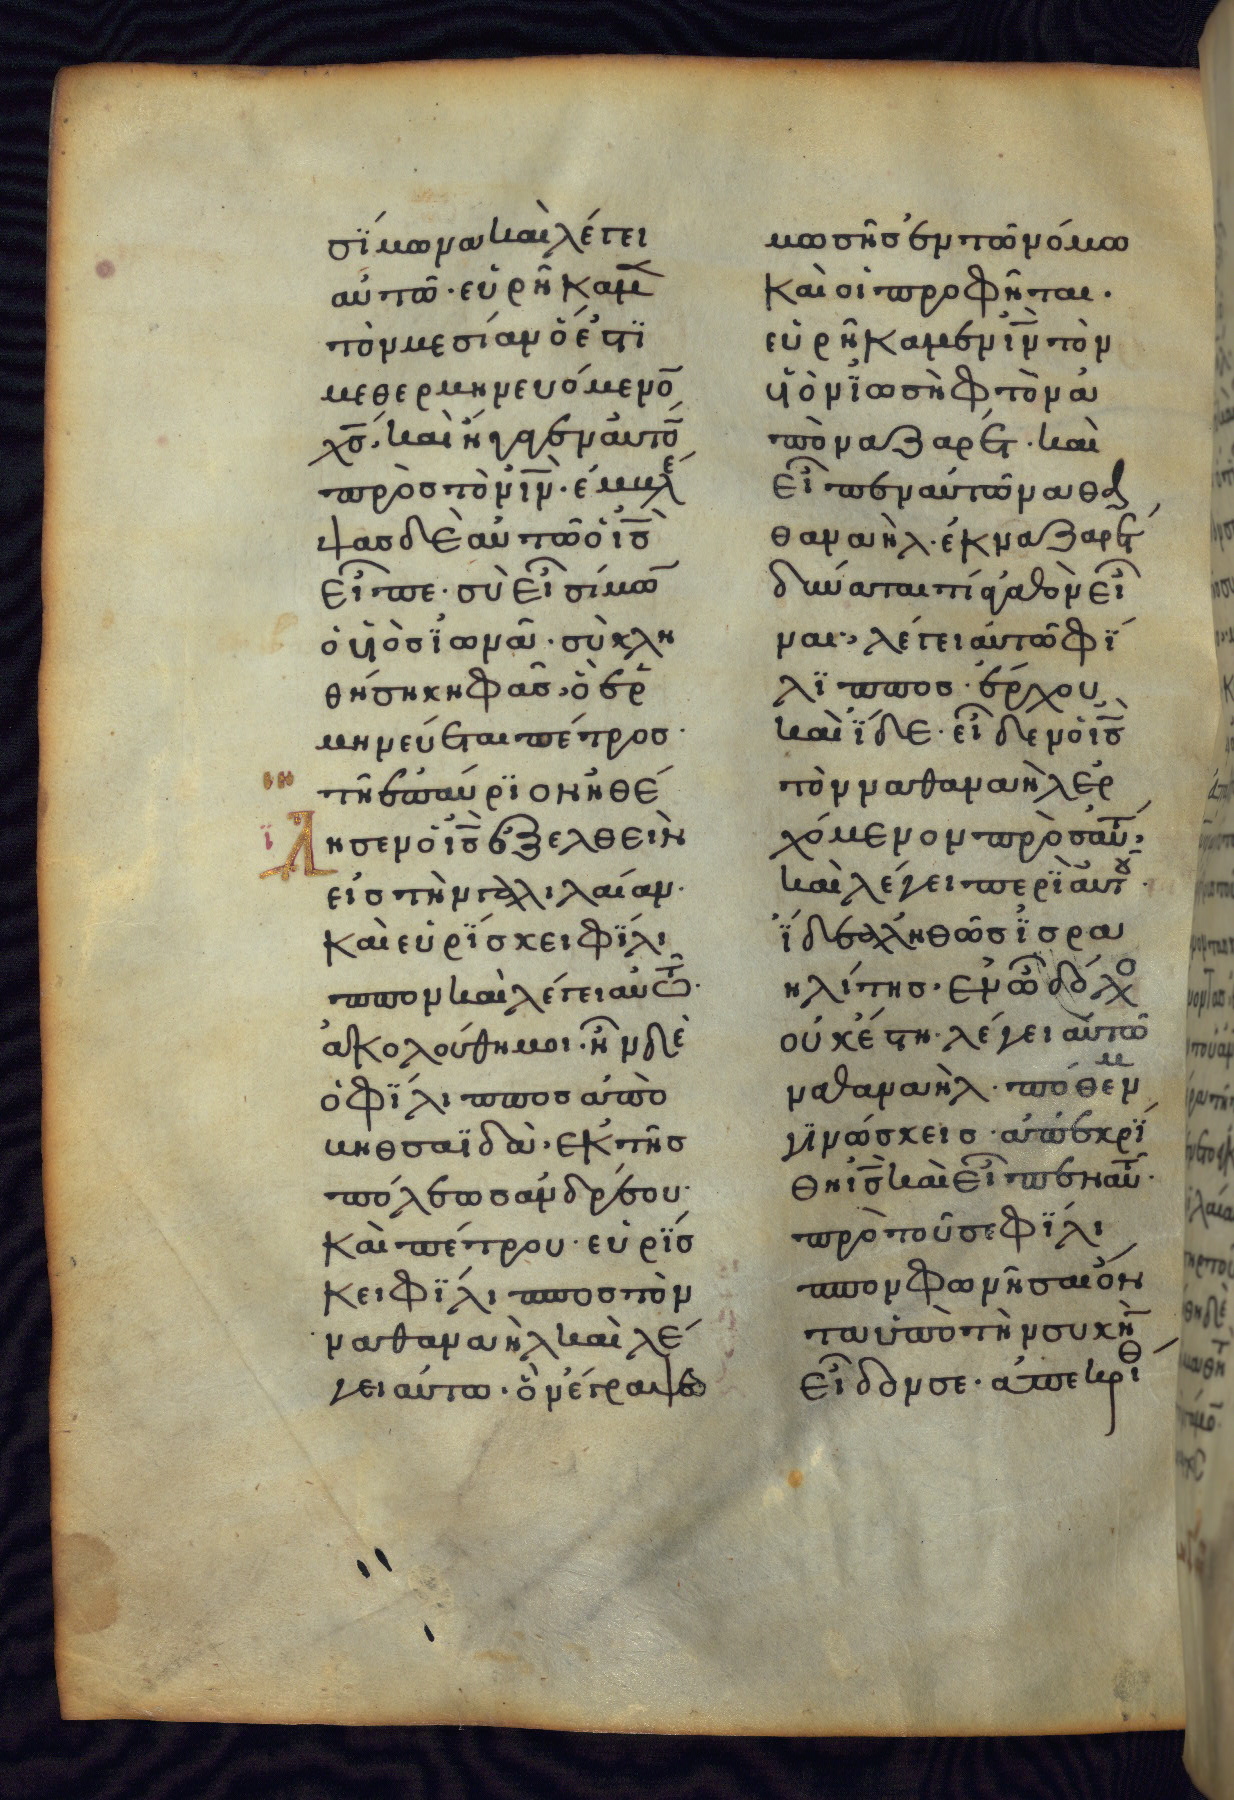 σϊμωνα καὶ λέγει
αὐτῶ· εὑρήκαμε̅
τὸν μεσίαν ὅ ἐστϊ
μεθερμηνευόμενο̅
χσ̅· καὶ ἤγαγεν αὐτο̅
πρὸς τὸν ι̅ν̅· ἐμβλέ
ψας δὲ αὐτῶ ὁ ι̅σ̅
εἶπε· σὺ εἶ σίμω̅
ὁ υἱὸς ϊωνᾶ· σὺ κλη
θήση κηφᾶς, ὃ ἑρ
μηνεύεται πέτρος·
τῆ ἐπαύρϊον ἠθέ
λησεν ὁ ι̅σ̅ ἐξελθεῖν
εἰς τὴν γαλιλαίαν·
καὶ εὑρϊσκει φϊλι
ππον καὶ λέγει αὐτῶ·
ἀκολούθη μοι· ἦν δὲ
ὁ φϊλιππος ἀπὸ
βηθσαϊδὰ· ἐκ τῆς
πόλεως ἀνδρέου·
καὶ πέτρου· εὑρϊσ
κει φϊλιππος τὸν
ναθαναὴλ καὶ λέ
γει αὐτω· ὃν ἔγραψε
μωσῆς ἐν τῶ νόμω
καὶ οἱ προφῆται·
εὑρήκαμεν ι̅ν̅ τὸν
υἱὸν ϊωσὴφ τὸν ἀ
πὸ ναζαρέτ· καὶ
εἶπεν αὐτῶ ναθα
θαναὴλ· ἐκ ναζαρέτ
δύναταί τί ἀγαθὸν εἶ
ναι, λέγει αὐτῶ φϊ
λϊππος· ἔρχου
καὶ ϊδε· εἶδεν ὁ ι̅σ̅
τὸν ναθαναὴλ ἐρ
χόμενον πρὸς αὐτ̅,
καὶ λέγει περϊ αὐτου·
ϊδε ἀληθῶς ϊσρα
ηλίτης· ἐν ὧ δόλο
οὐκ ἔστη· λέγει αὐτῶ
ναθαναὴλ· πόθεν μ
γϊνώσκεις· ἀπεκρϊ
θη ι̅σ̅ καὶ εἶπεν αὐτ̅·
πρὸ τοῦ σε φϊλι
ππον φωνῆσαι ὄν
τα ὑπὸ τὴν συκῆ̅
εἶδόν σε· ἀπεκρίθ